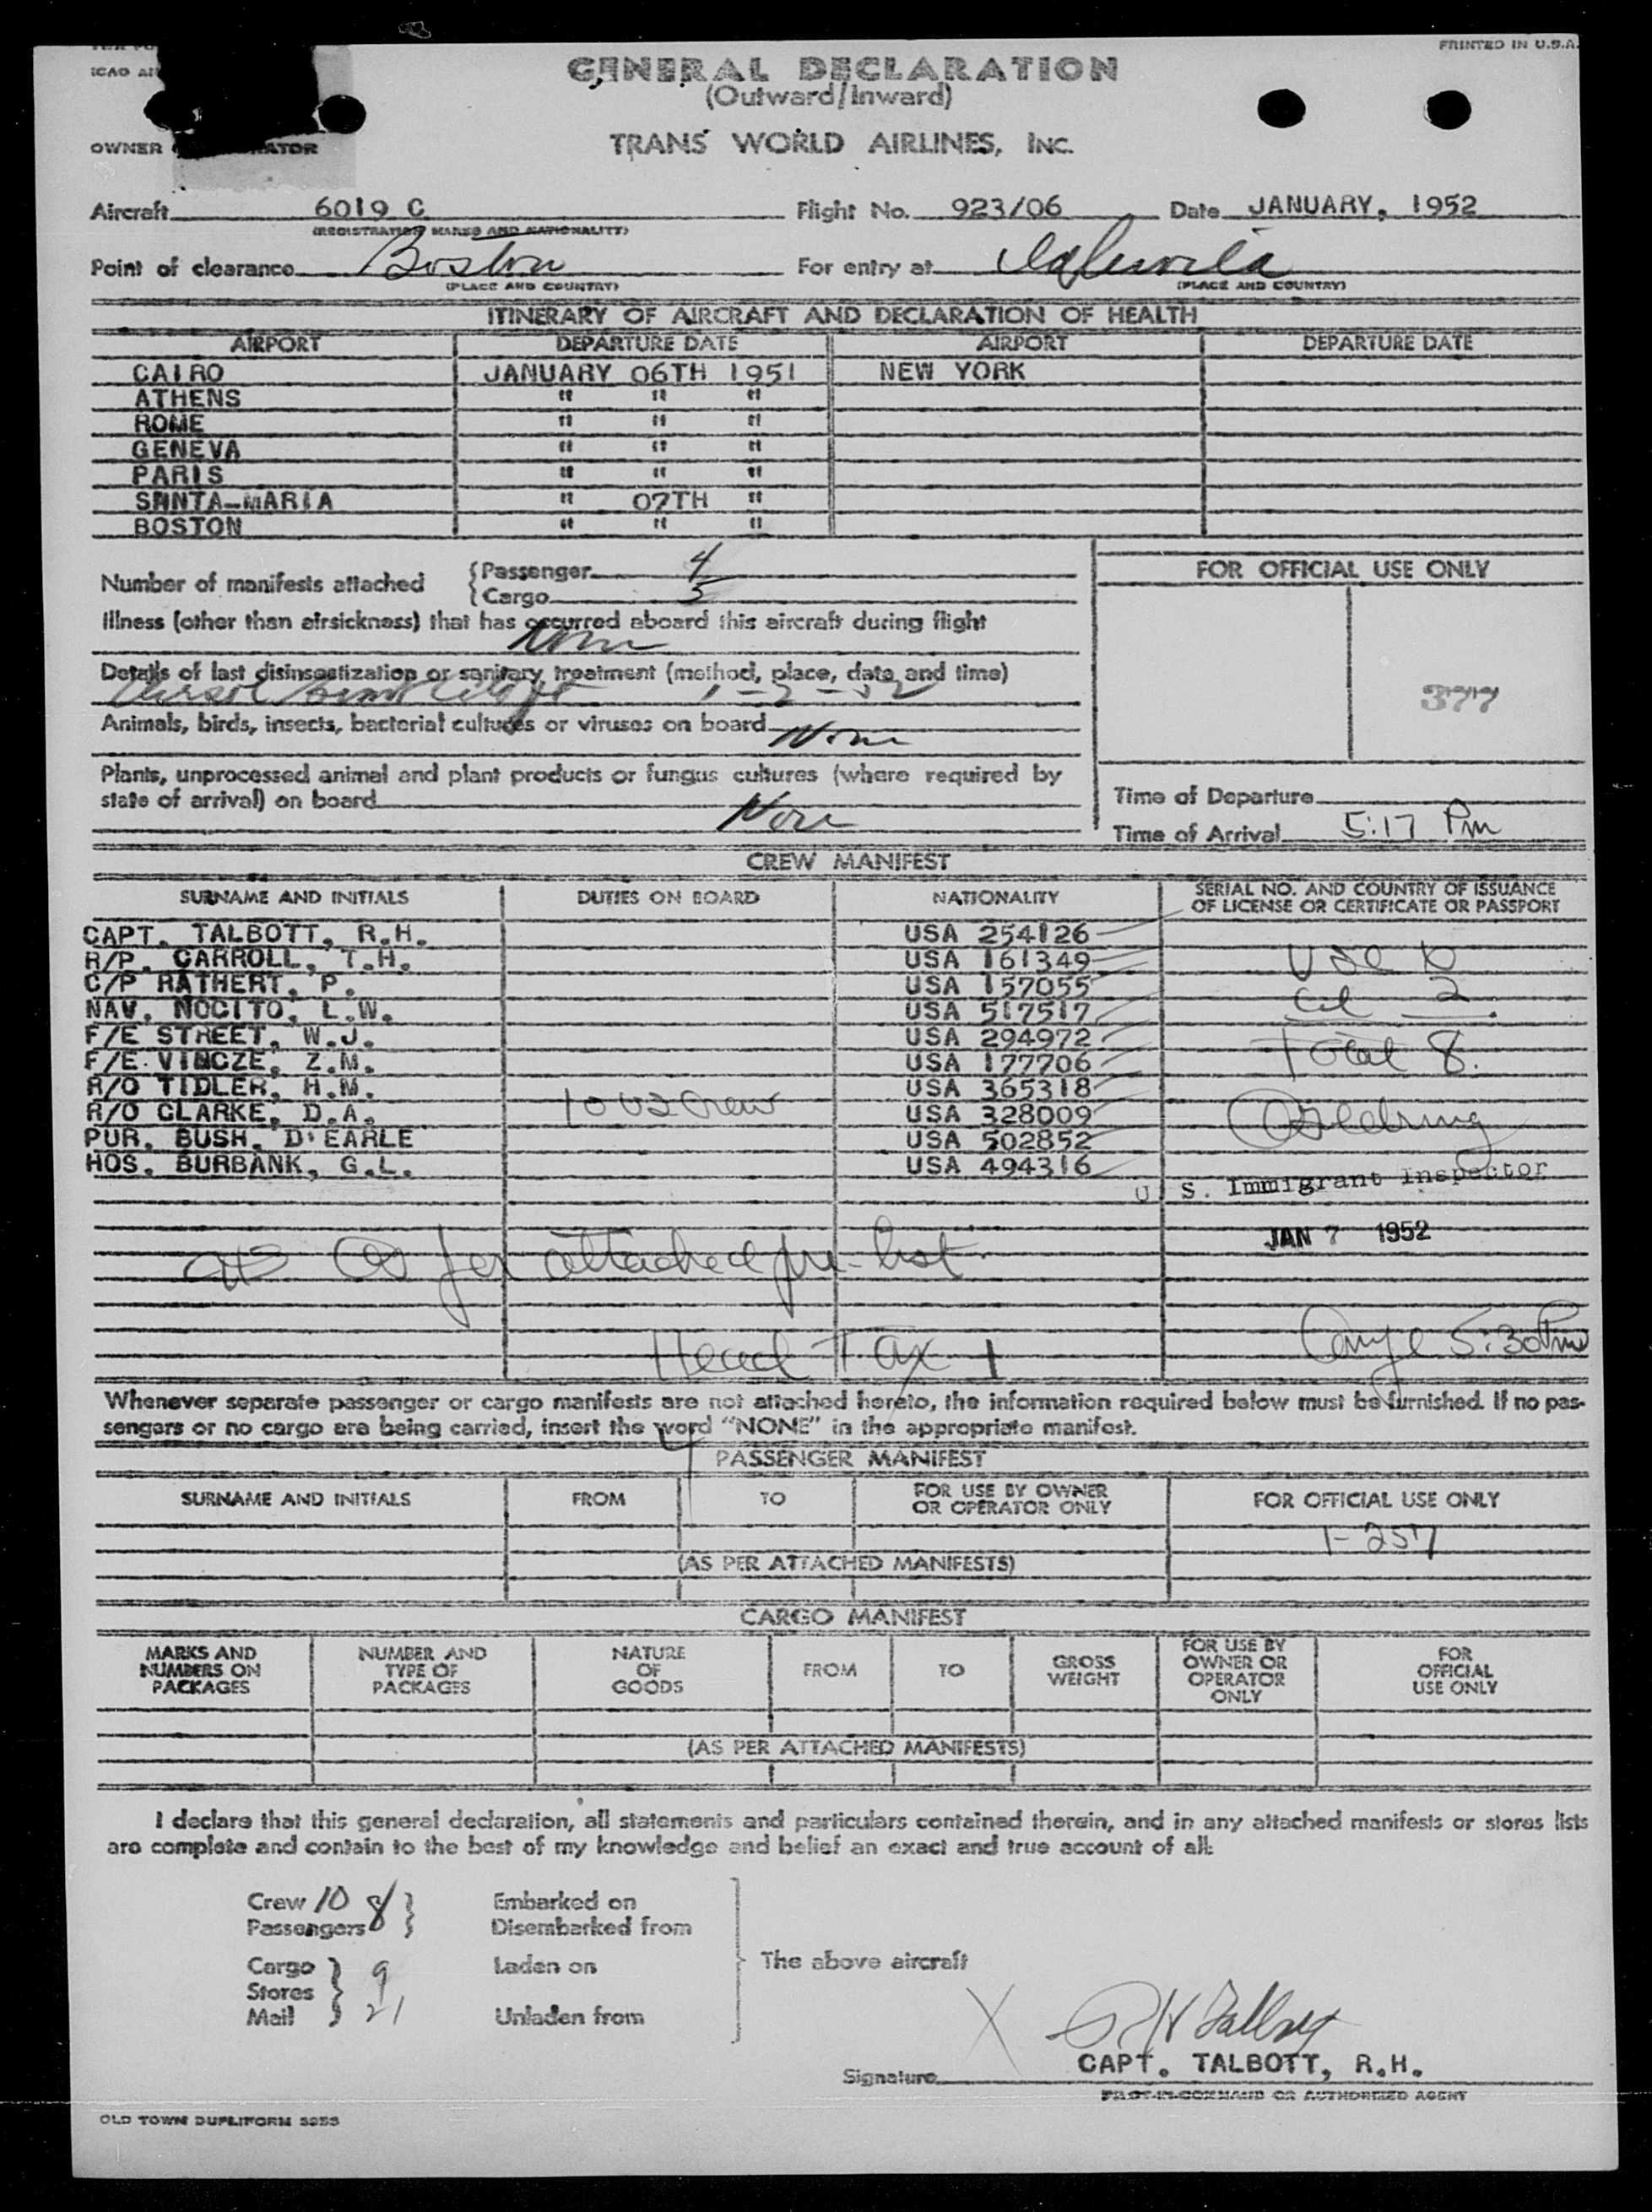 PRINTED IN U.S.A.
ICAO
GENERAL DECLARATION
(Outward/Inward)
OWNER
TRANS WORLD AIRLINES, INC.
Aircraft 6019 C Flight No. 923/06 Date JANUARY, 1952
(REGISTRATION MARKS AND NATIONALITY)
Point of clearance Boston For entry at
(PLACE AND COUNTRY) (PLACE AND COUNTRY)
ITINERARY OF AIRCRAFT AND DECLARATION OF HEALTH
AIRPORT DEPARTURE DATE AIRPORT DEPARTURE DATE
CAIRO JANUARY 06TH 1951 NEW YORK
ATHENS " " "
ROME " " "
GENEVA " " "
PARIS " " "
SANTA-MARIA " 07TH "
BOSTON " " "
Number of manifests attached {Passenger 4
{Cargo 5
FOR OFFICIAL USE ONLY
Illness (other than airsickness) that has occurred aboard this aircraft during flight
None
Details of last disinsectization or sanitary treatment (method, place, date and time)
377
Animals, birds, insects, bacterial cultures or viruses on board None
Plants, unprocessed animal and plant products or fungus cultures (where required by
state of arrival) on board None
Time of Departure
Time of Arrival 5:17 Pm
CREW MANIFEST
SURNAME AND INITIALS DUTIES ON BOARD NATIONALITY SERIAL NO. AND COUNTRY OF ISSUANCE
OF LICENSE OR CERTIFICATE OR PASSPORT
CAPT. TALBOTT, R.H. USA 254126
R/P. CARROLL, T.H. USA 161349
C/P RATHERT, P. USA 157055
NAV. NOCITO, L.W. USA 517517
F/E STREET, W.J. USA 294972
F/E VINCZE, Z.M. USA 177706 Total 8.
R/O TIDLER, H.M. USA 365318
R/O CLARKE, D.A. 10 US Crew USA 328009
PUR. BUSH, D'EARLE USA 502852
HOS. BURBANK, G.L. USA 494316
U. S. Immigrant Inspector
JAN 7 1952
attached list
Head Tax 1
5:30 Pm
Whenever separate passenger or cargo manifests are not attached hereto, the information required below must be furnished. If no pas-
sengers or no cargo are being carried, insert the word "NONE" in the appropriate manifest.
PASSENGER MANIFEST
SURNAME AND INITIALS FROM TO FOR USE BY OWNER
OR OPERATOR ONLY FOR OFFICIAL USE ONLY
1-257
(AS PER ATTACHED MANIFESTS)
CARGO MANIFEST
MARKS AND
NUMBERS ON
PACKAGES
NUMBER AND
TYPE OF
PACKAGES
NATURE
OF
GOODS
FROM
TO
GROSS
WEIGHT
FOR USE BY
OWNER OR
OPERATOR
ONLY
FOR
OFFICIAL
USE ONLY
(AS PER ATTACHED MANIFESTS)
I declare that this general declaration, all statements and particulars contained therein, and in any attached manifests or stores lists
are complete and contain to the best of my knowledge and belief an exact and true account of all:
Crew 10 Embarked on
Passengers 8 Disembarked from
Cargo 9 Laden on The above aircraft
Stores
Mail 21 Unladen from
X R H Talbott
Signature CAPT. TALBOTT, R.H.
PILOT-IN-COMMAND OR AUTHORIZED AGENT
OLD TOWN DUPLIFORM